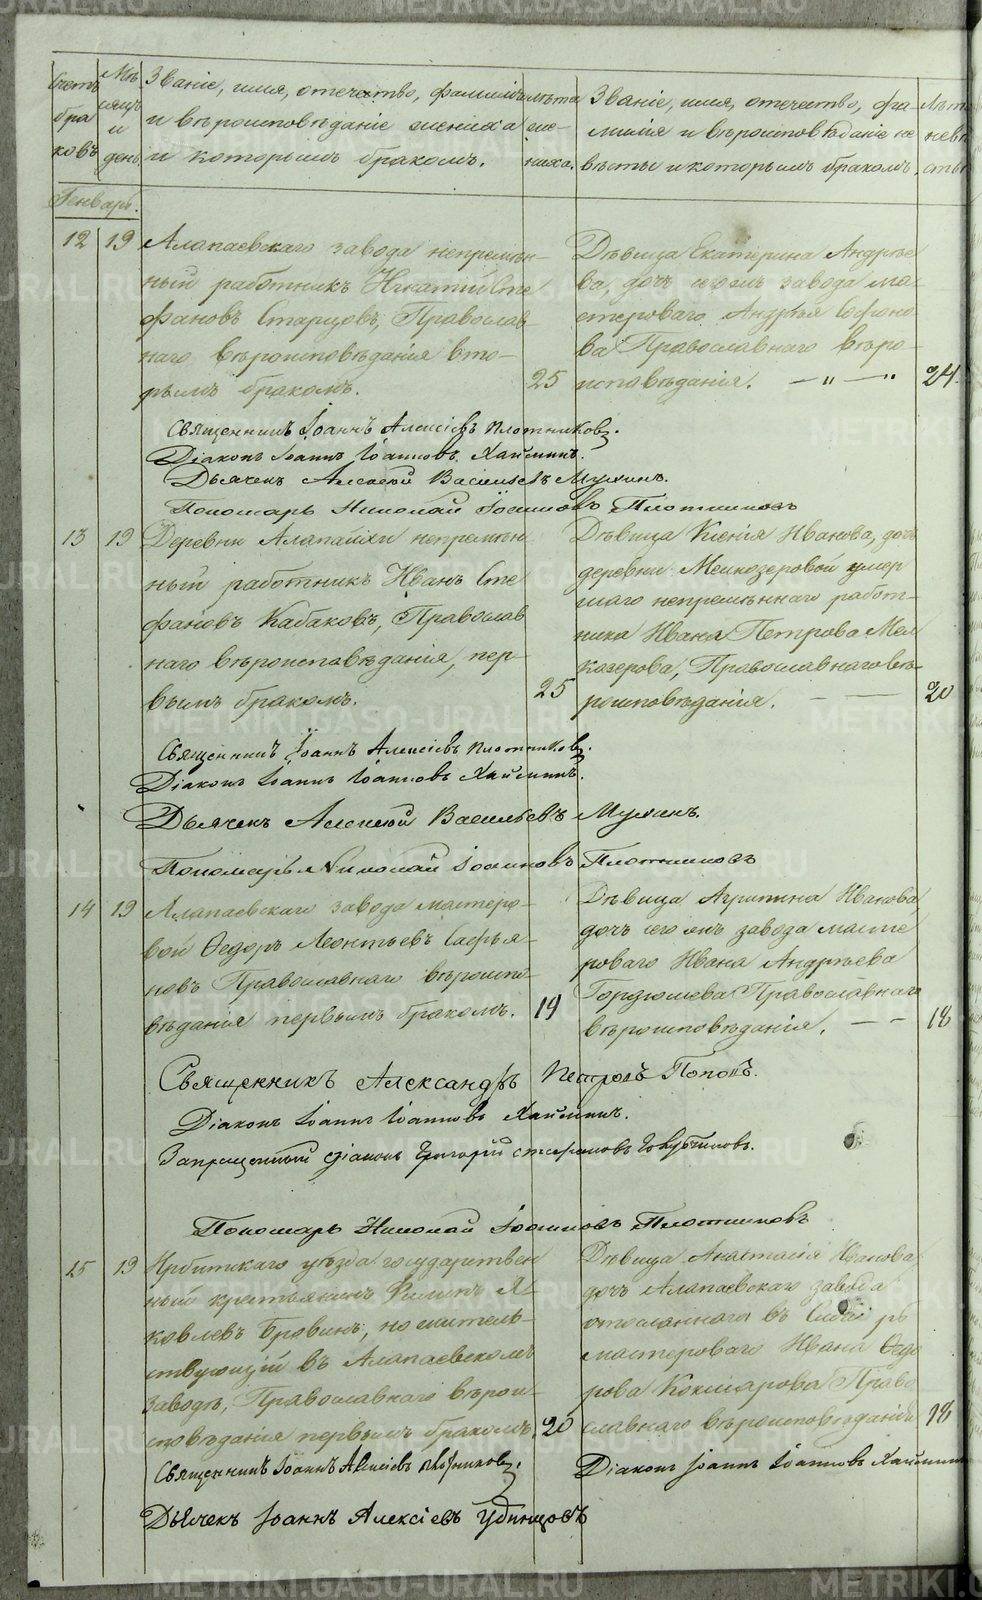 Счетъ браковъ
Мѣсяцъ и день
Званіе, имя, отечество, фамилія
и вѣроисповѣданіе жениха
и которымъ бракомъ.
Лѣта жениха.
Званіе, имя, отечество, фа-
милія и вѣроисповѣданіе не
вѣсты и которымъ бракомъ.
Лѣта невѣсты
Генварь.
12 19 Алапаевскаго завода непремѣн-
ный работникъ Игнатій Сте
фановъ Старцовъ, Православ-
наго вѣроисповѣданія вто-
рымъ бракомъ. 25
Дѣвица Екатерина Андрѣе
ва, дочь сего жъ завода ма-
стероваго Андрея Софоно-
ва Православнаго вѣро-
исповѣданія. — " — " 24.
Священникъ Іоаннъ Алексіевъ Плотниковъ.
Діаконъ Іоаннъ Іоанновъ Хайминъ.
Дьячекъ Алексей Васильевъ Мухинъ.
Пономарь Николай Іоанновъ Плотниковъ
13 19 Деревни Алапаихи непремѣн
ный работникъ Иванъ Сте
фановъ Кабаковъ, Православ
наго вѣроисповѣданія, пер-
вымъ бракомъ. 25
Дѣвица Ксенія Иванова, дочь
деревни Мелкозеровой умер
шаго непремѣннаго работ-
ника Ивана Петрова Мел
козерова, Православнаго вѣ-
роисповѣданія. — — 20
Священникъ Іоаннъ Алексіевъ Плотниковъ.
Діаконъ Іоаннъ Іоанновъ Хайминъ.
Дьячекъ Алексей Васильевъ Мухинъ.
Пономарь Николай Іоанновъ Плотниковъ
14 19 Алапаевскаго завода мастеро-
вой Ѳедоръ Леонтьевъ Сафья-
новъ Православнаго вѣроиспо-
вѣданія первымъ бракомъ. 19
Дѣвица Агрипина Иванова,
дочь сего жъ завода масте
роваго Ивана Андреева
Гордюшева Православнаго
вѣроисповѣданія. — — 18
Священникъ Александръ Петровъ Поповъ.
Діаконъ Іоаннъ Іоанновъ Хайминъ.
Запрещенный діаконъ Григорій Стефановъ
Пономарь Николай Іоанновъ Плотниковъ
15 19 Ирбитскаго уѣзда государствен
ный крестьянинъ Филипъ Я-
ковлевъ Бровинъ, но житель-
ствующій въ Алапаевскомъ
заводѣ, Православнаго вѣрои-
сповѣданія первымъ бракомъ. 20
Дѣвица Анастасія Иванова,
дочь Алапаевскаго завода
отосланнаго въ Сибирь
мастероваго Ивана Ѳедо
рова Кокшарова Право
славнаго вѣроисповѣданія 18
Священникъ Іоаннъ Алексіевъ Плотниковъ.
Діаконъ Іоаннъ Іоанновъ Хайминъ
Дьячекъ Іоаннъ Алексіевъ Удинцовъ
METRIKI.GASO-URAL.RU